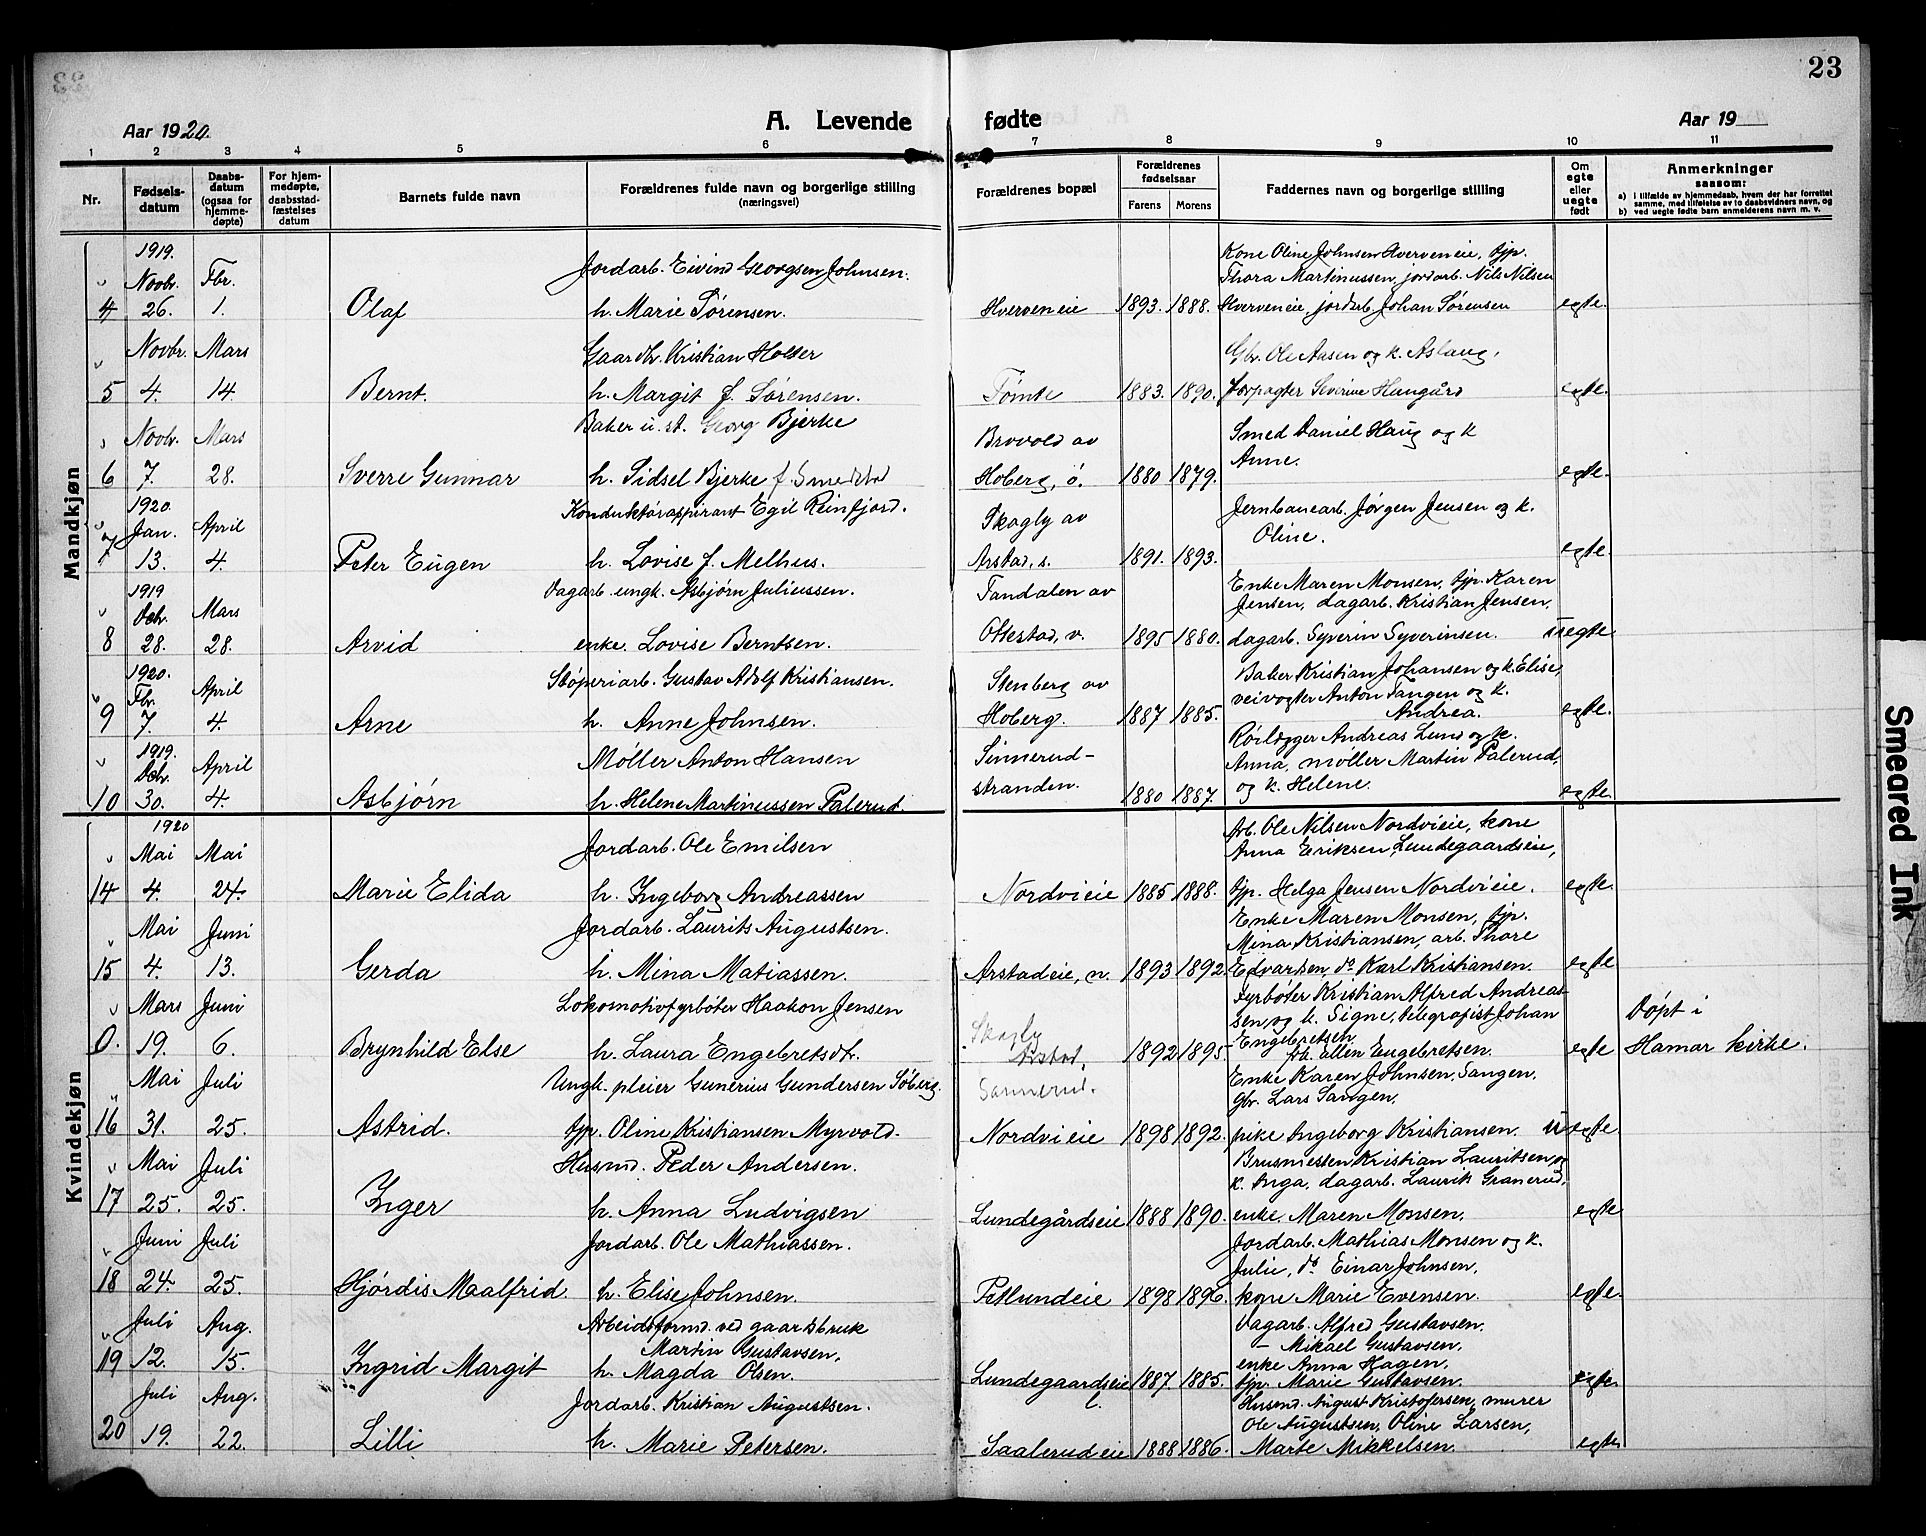 23
Aar 1920. A. Levende fødte Aar 19
1 2 3 4 5 6 7 8 9 10 11
Nr. Fødsels-datum Daabs-datum (ogsaa for hjemme-døpte) For hjem-medøpte, daabsstad-fæstelses datum Barnets fulde navn Forældrenes fulde navn og borgerlige stilling (næringsvei) Forældrenes bopæl Forældrenes fødselsaar Farens Morens Faddernes navn og borgerlige stilling Om egte eller uegte født Anmerkninger saasom:
a) i tilfælde av hjemmedaab, hvem der har forrettet samme, med tilføielse av to daabsvidners navn, og
b) ved uegte fødte barn anmelderens navn m. v.
Mandkjøn
1919. Kone Oline Johnsen Hverveneie, tjp.
Novbr. Fbr. Jordarb. Eivind Georgsen Johnsen. Thora Martinussen, jordarb. Nils Nilsen
4 26. 1. Olaf h. Marie Sørensen. Hverveneie 1893. 1888. Hverveneie, jordarb. Johan Sørensen egte.
Novbr. Mars Gaardbr. Kristian Holter Gbr. Ole Aasen og k. Aslaug,
5 4. 14. Bernt. h. Margit f. Sørensen. Tømte 1883. 1890. forpagter Severine Haugård egte.
Novbr. Mars Baker u. st. Georg Bjerke Brovold av Smed Daniel Haug og k
6 7. 28. Sverre Gunnar h. Sidsel Bjerke f. Smedstad Hoberg, ø. 1880 1879. Anne. egte.
1920. Jan. April Konduktøraspirant Egil Reinfjord. Skogly av Jernbanearb. Jørgen Jensen og k.
7 13. 4. Peter Eugen h. Lovise f. Melhus. Arstad, s. 1891. 1893. Oline. egte.
1919 Dagarb. ungk. Asbjørn Juliussen. Tandalen av Enke Maren Monsen, tjp. Karen
Dcbr. Mars Jensen, dagarb. Kristian Jensen,
8 28. 28. Arvid enke. Lovise Berntsen. Ottestad, v. 1895 1880. dagarb. Syverin Syverinsen. uegte.
1920. Fbr. April Støperiarb. Gustav Adolf Kristiansen. Stenberg av Baker Kristian Johansen og k. Elise,
veivogter Anton Tangen og k.
9 7. 4. Arne h. Anne Johnsen. Hoberg. 1887 1885. Andrea. egte.
1919. Dcbr. April Møller Anton Hansen Sinnerud- Rørlægger Andreas Lund og k.
Anna, møller Martin Palerud,
10 30. 4. Asbjørn h. Helene Martinussen Palerud. stranden. 1880 1887. og k. Helene. egte.
Kvindekjøn
1920 Arb. Ole Nilsen Nordvieie, kone
Mai Mai Jordarb. Ole Emilsen Anna Eriksen Lundegaardseie,
14 4. 24. Marie Elida h. Ingeborg Andreassen Nordvieie 1885 1888. tjp. Helga Jensen Nordvieie. egte.
Mai Juni Jordarb. Laurits Augustsen. Enke Maren Monsen, tjp.
Mina Kristiansen, arb. Thore
15 4. 13. Gerda h. Mina Matiassen. Arstadeie, n. 1893 1892. Edvardsen, do Karl Kristiansen. egte
Mars Juni Lokomotivfyrbøter Haakon Jensen Fyrbøter Kristian Alfred Andreas-
Skogly sen, og k. Signe, telegrafist Johan Døpt i
0. 19. 6. Brynhild Else h. Laura Engebretsdt. Arstad, 1892 1895. Engebretsen, frk. Ellen Engebretsen. egte Hamar kirke.
Mai Juli Ungk. pleier Gunerius Gundersen Søberg. Sannerud. Enke Karen Johnsen, Sangen.
Gbr. Lars Sangen,
16 31. 25. Astrid. tjp. Oline Kristiansen Myrvold. Nordvieie 1898 1892. pike Ingeborg Kristiansen. uegte
Mai Juli Husmd. Peder Andersen. Brusmesten Kristian Lauritsen, og
k. Inga, dagarb. Laurits Granerud,
17 25. 25. Inger h. Anna Ludvigsen Lundegårdseie 1888 1890. enke. Maren Monsen. egte
Juni Juli Jordarb. Ole Mathiassen. Jordarb. Mathias Monsen og k.
Julie, do Einar Johnsen,
18 24. 25. Hjørdis Maalfrid. h. Elise Johnsen. Petlundeie 1898 1896. kone Marie Evensen. egte.
Juli Aug. Arbeidsformd. ved gaardsbruk Dagarb. Alfred Gustavsen.
Martin Gustavsen, — Mikael Gustavsen,
19 12. 15. Ingrid Margit h. Magda Olsen. enke Anna Hagen,
Lundegaardseie 1887. 1885. tjp. Marie Gustavsen. egte.
Juli Aug. Jordarb. Kristian Augustsen. Husmd. August Kristofersen, murer
Ole Augustsen, Oline Larsen,
20 19. 22. Lilli h. Marie Petersen. Saalerudeie 1888 1886. Marte Mikkelsen. egte
Smeared Ink